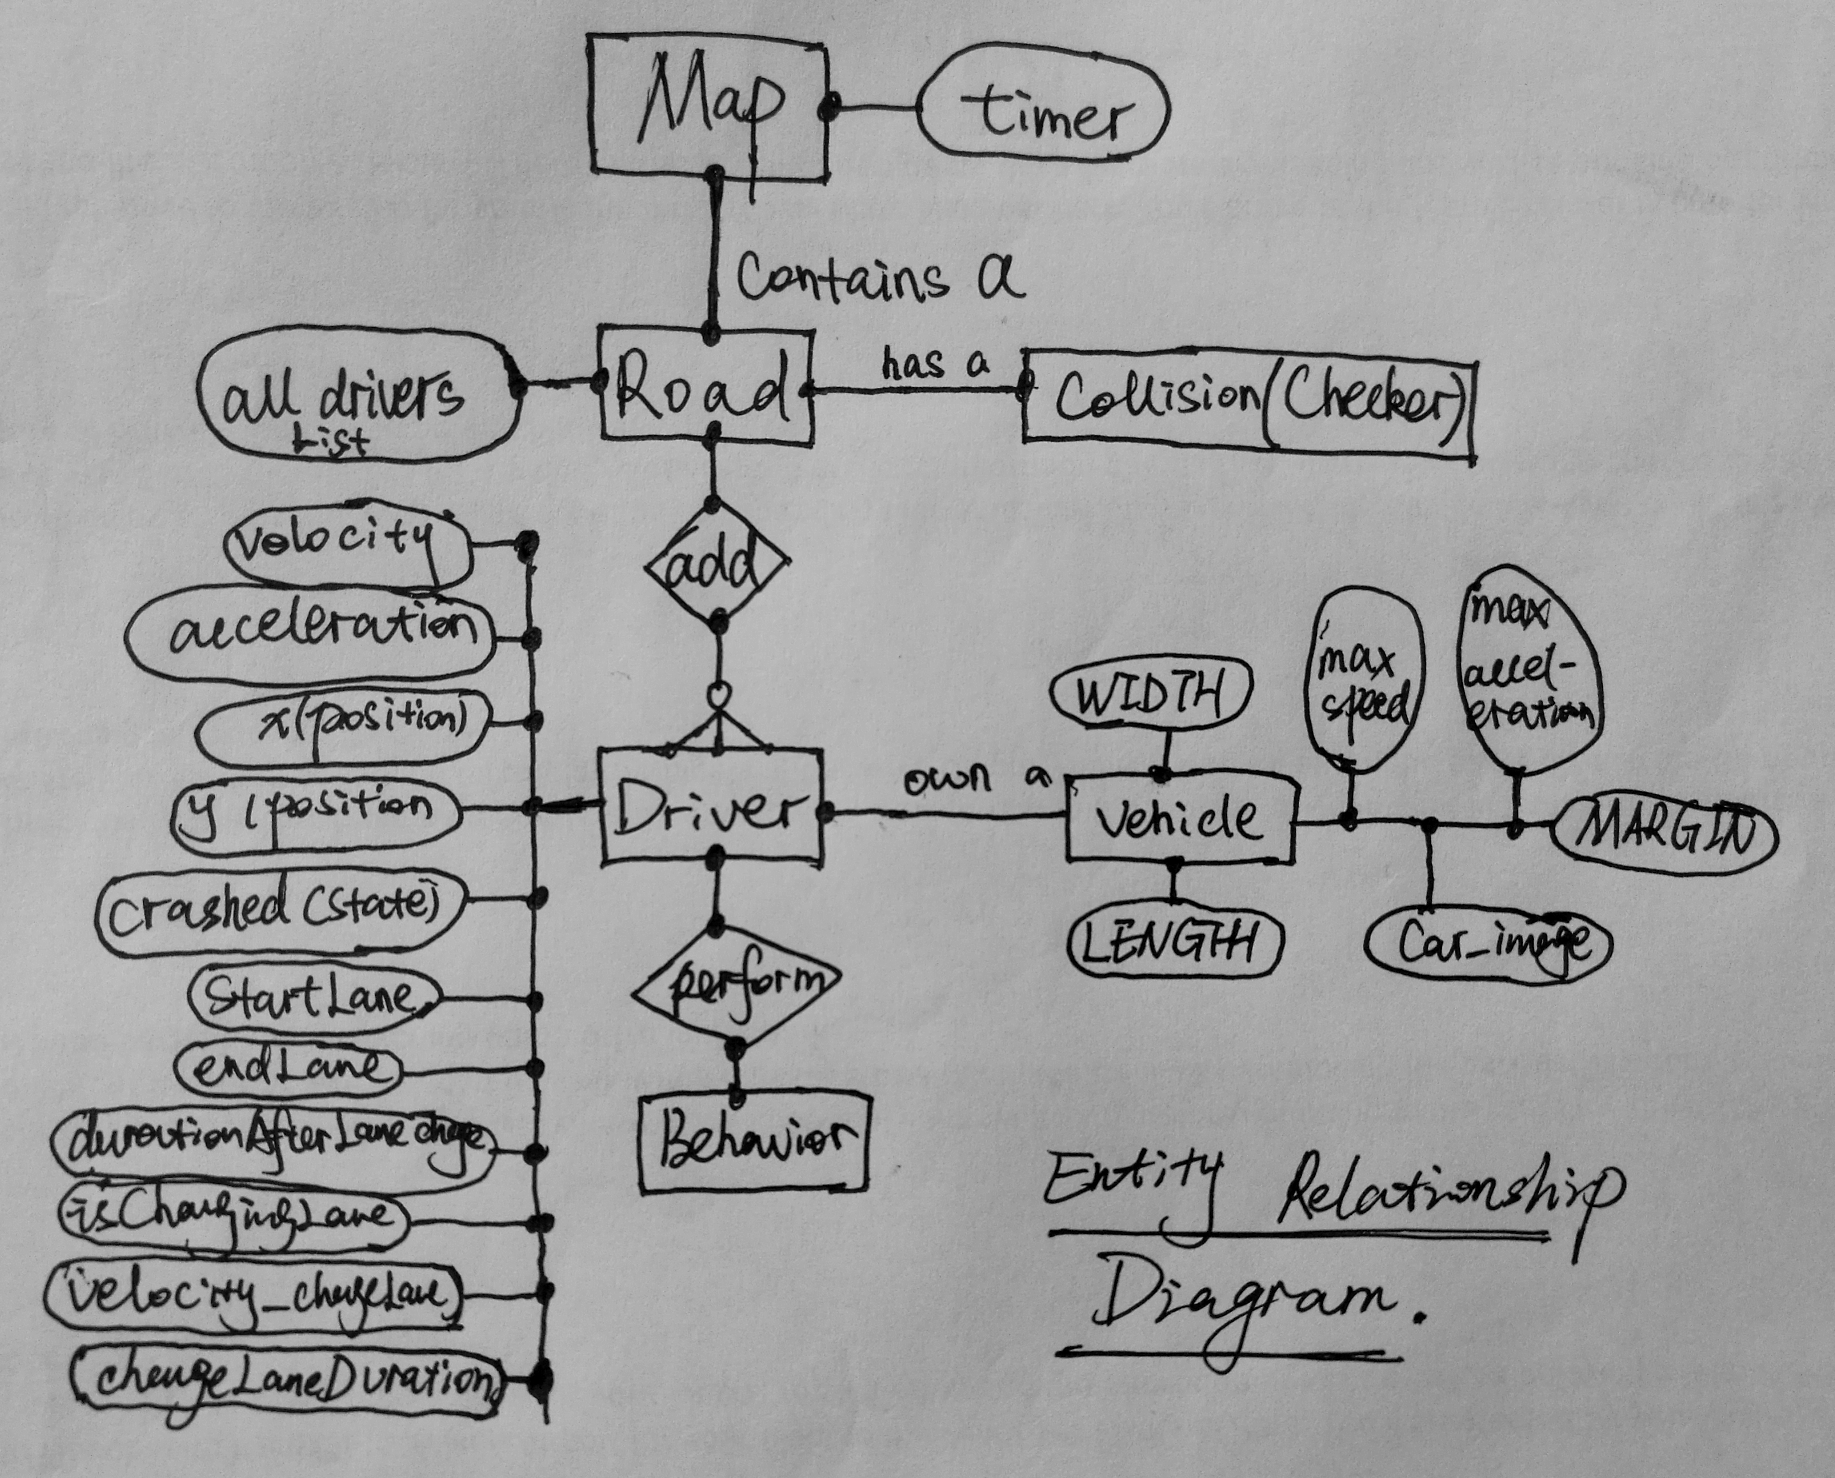 Map
timer
Contains a
all drivers
List
Road
has a
Collision (Checker)
velocity
acceleration
x (position)
y (position
crashed (state)
startLane
endLane
durationAfterLane
isChangingLane
velocity_
changeLaneDuration
add
Driver
own a
Vehicle
WIDTH
LENGTH
max
speed
max
accel-
eration
MARGIN
Car_image
perform
Behavior
Entity Relationship
Diagram.